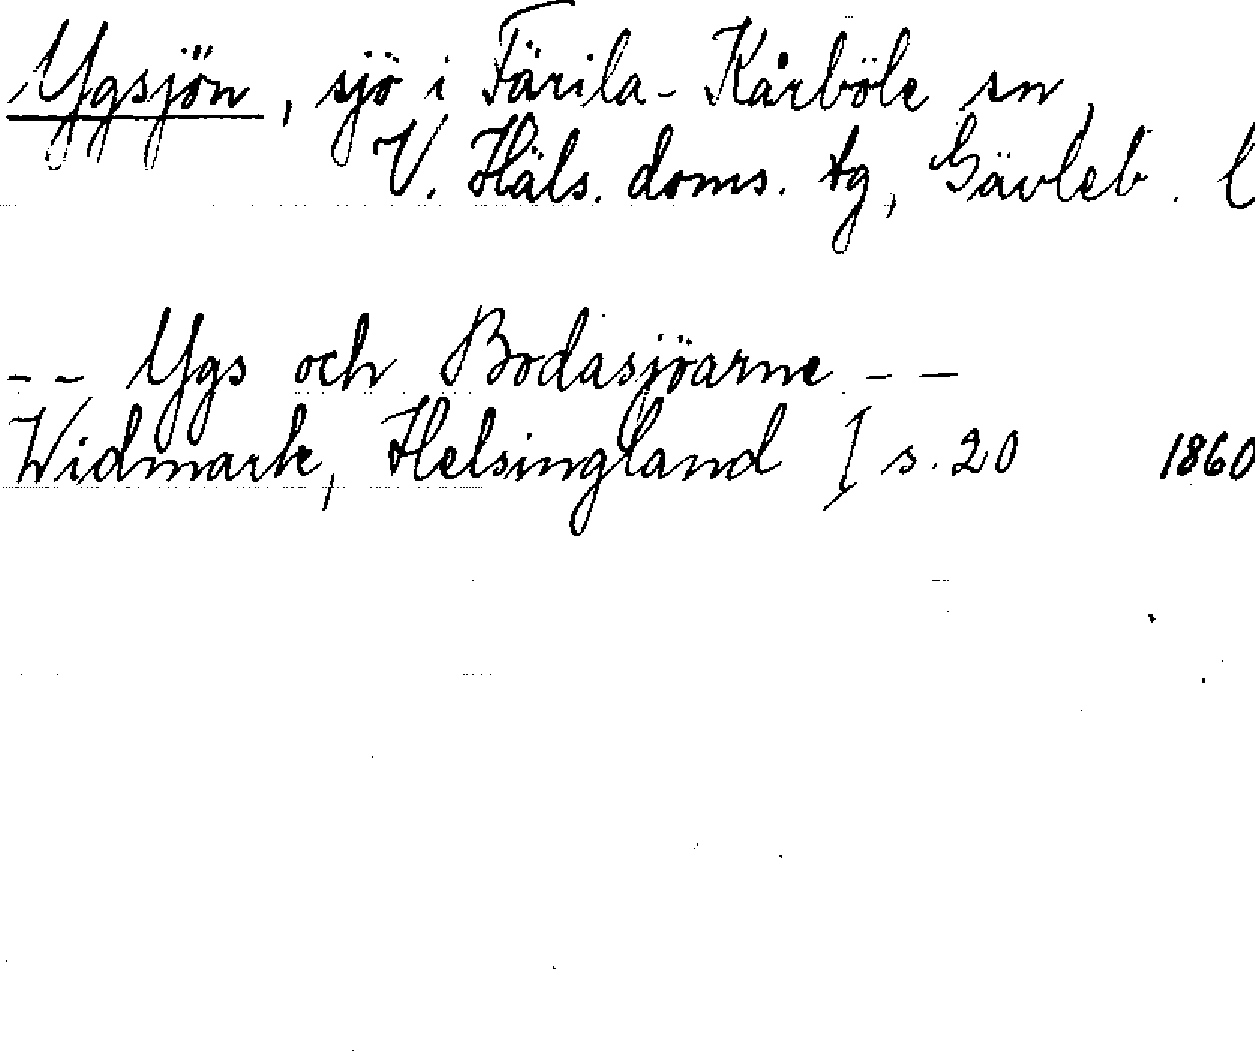 Ygsjön, sjö i Färila-Kårböle sn,
V. Häls. doms. tg, Gävleb. l
-- Ygs och Bodasjöarne --
Widmark, Helsingland I s. 20 1860